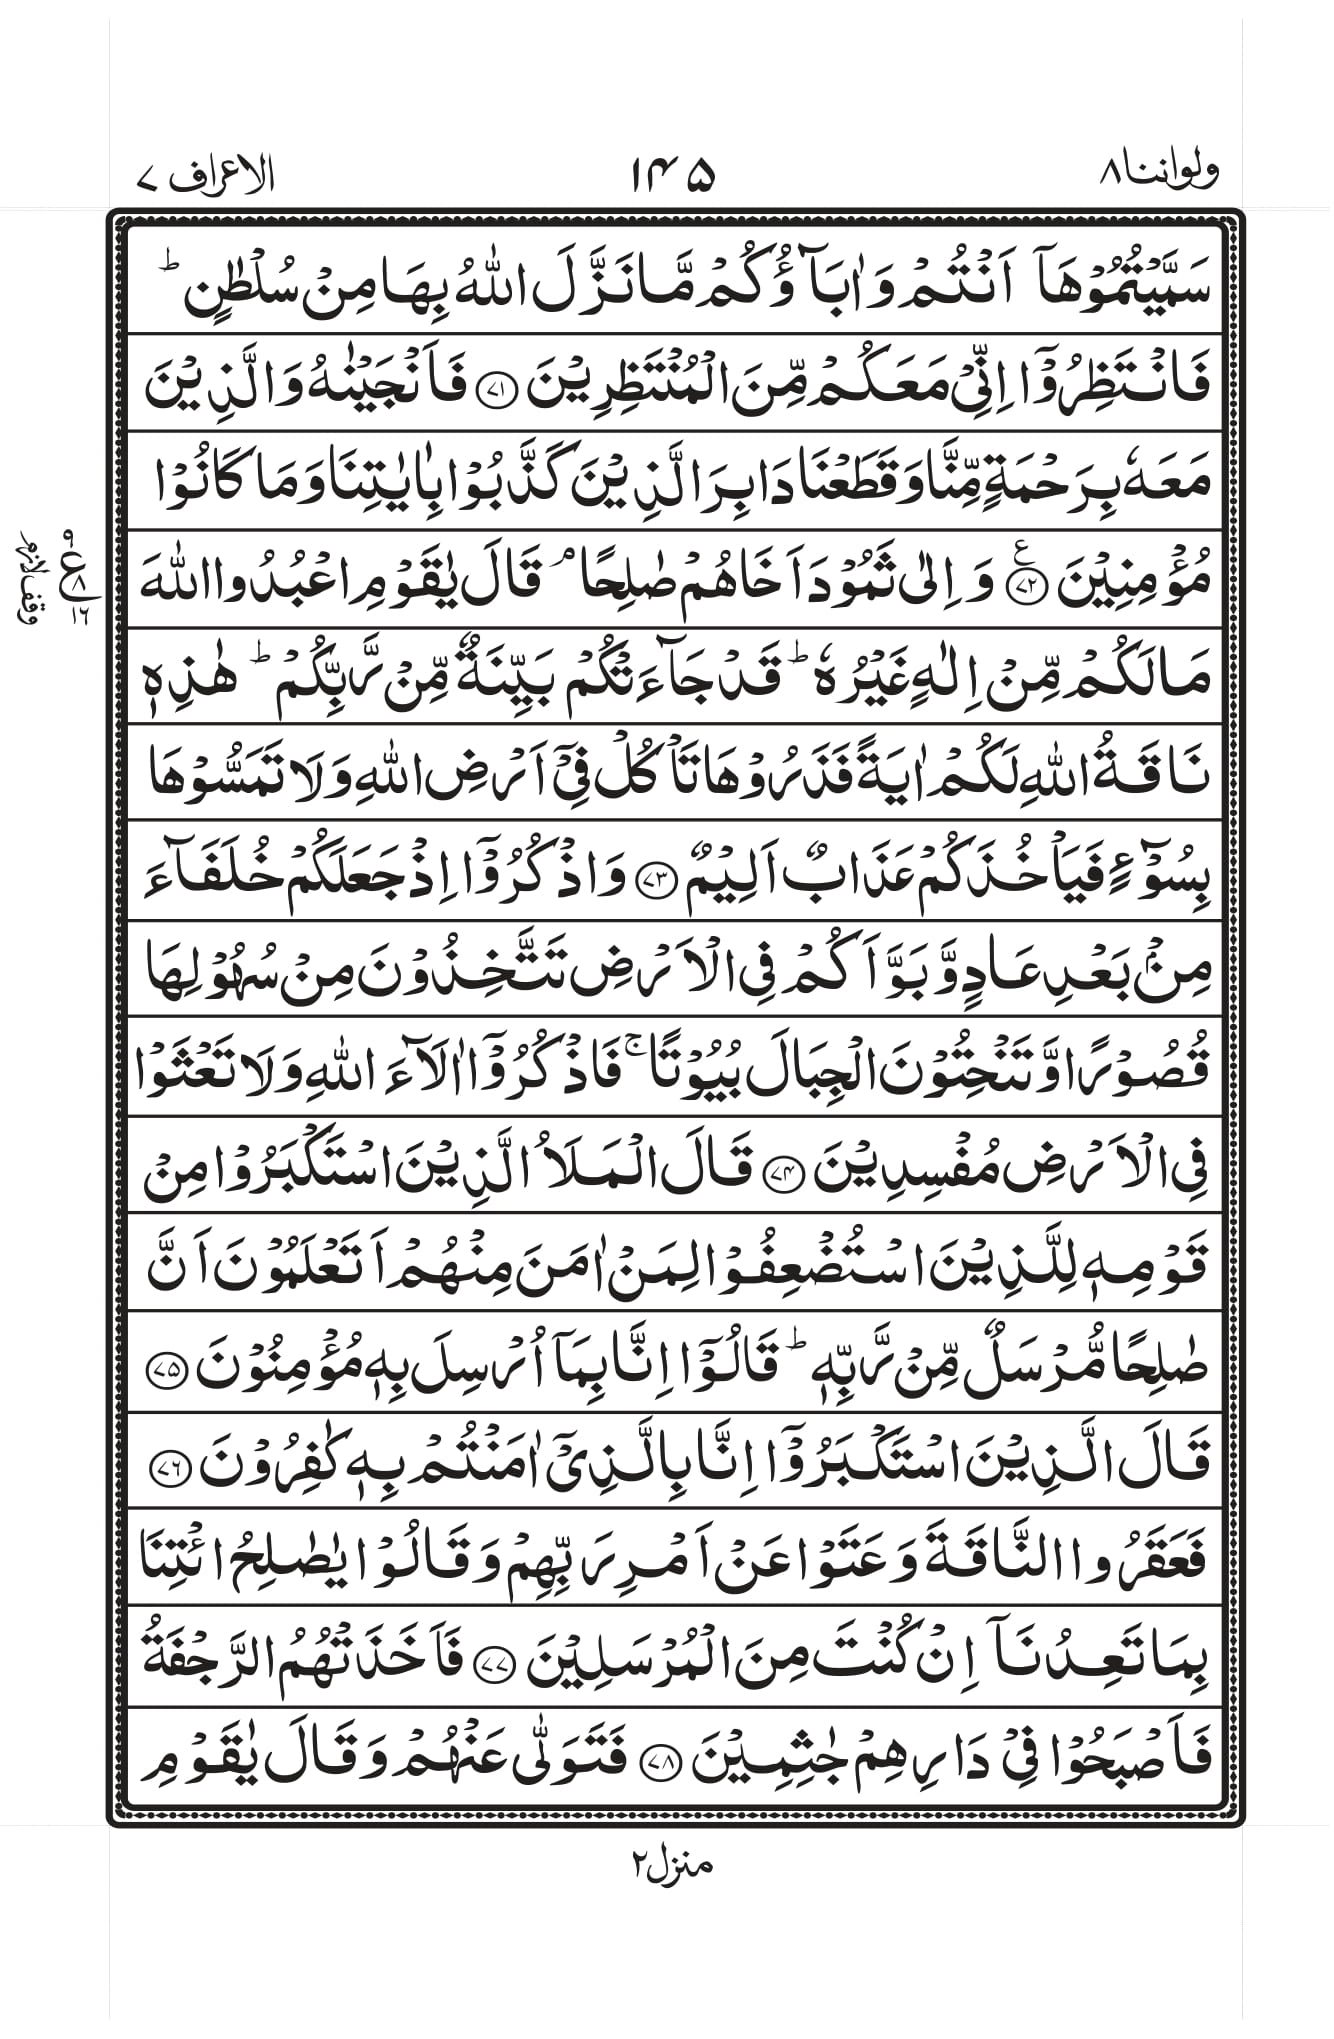 ولواننا ٨
١۴۵
الاعراف ٧
سَمَّيْتُمُوْهَاۤ اَنْتُمْ وَاٰبَآؤُكُمْ مَّا نَزَّلَ اللّٰهُ بِهَا مِنْ سُلْطٰنٍ ؕ
فَانْتَظِرُوْۤا اِنِّىْ مَعَكُمْ مِّنَ الْمُنْتَظِرِيْنَ ﴿٧١﴾ فَاَنْجَيْنٰهُ وَالَّذِيْنَ
مَعَهٗ بِرَحْمَةٍ مِّنَّا وَقَطَعْنَا دَابِرَ الَّذِيْنَ كَذَّبُوْا بِاٰيٰتِنَا وَمَا كَانُوْا
مُؤْمِنِيْنَ ﴿٧٢﴾ ع وَاِلٰى ثَمُوْدَ اَخَاهُمْ صٰلِحًا ۘ قَالَ يٰقَوْمِ اعْبُدُوا اللّٰهَ
ع ٩
٨
١٦
وقف لازم
مَا لَكُمْ مِّنْ اِلٰهٍ غَيْرُهٗ ؕ قَدْ جَآءَتْكُمْ بَيِّنَةٌ مِّنْ رَّبِّكُمْ ؕ هٰذِهٖ
نَاقَةُ اللّٰهِ لَكُمْ اٰيَةً فَذَرُوْهَا تَاْكُلْ فِىْۤ اَرْضِ اللّٰهِ وَلَا تَمَسُّوْهَا
بِسُوْٓءٍ فَيَاْخُذَكُمْ عَذَابٌ اَلِيْمٌ ﴿٧٣﴾ وَاذْكُرُوْۤا اِذْ جَعَلَكُمْ خُلَفَآءَ
مِنْۢ بَعْدِ عَادٍ وَّبَوَّاَكُمْ فِى الْاَرْضِ تَتَّخِذُوْنَ مِنْ سُهُوْلِهَا
قُصُوْرًا وَّتَنْحِتُوْنَ الْجِبَالَ بُيُوْتًا ۚ فَاذْكُرُوْۤا اٰلَآءَ اللّٰهِ وَلَا تَعْثَوْا
فِى الْاَرْضِ مُفْسِدِيْنَ ﴿٧۴﴾ قَالَ الْمَلَاُ الَّذِيْنَ اسْتَكْبَرُوْا مِنْ
قَوْمِهٖ لِلَّذِيْنَ اسْتُضْعِفُوْا لِمَنْ اٰمَنَ مِنْهُمْ اَتَعْلَمُوْنَ اَنَّ
صٰلِحًا مُّرْسَلٌ مِّنْ رَّبِّهٖ ؕ قَالُوْۤا اِنَّا بِمَاۤ اُرْسِلَ بِهٖ مُؤْمِنُوْنَ ﴿٧۵﴾
قَالَ الَّذِيْنَ اسْتَكْبَرُوْۤا اِنَّا بِالَّذِىْۤ اٰمَنْتُمْ بِهٖ كٰفِرُوْنَ ﴿٧٦﴾
فَعَقَرُوا النَّاقَةَ وَعَتَوْا عَنْ اَمْرِ رَبِّهِمْ وَقَالُوْا يٰصٰلِحُ ائْتِنَا
بِمَا تَعِدُنَاۤ اِنْ كُنْتَ مِنَ الْمُرْسَلِيْنَ ﴿٧٧﴾ فَاَخَذَتْهُمُ الرَّجْفَةُ
فَاَصْبَحُوْا فِىْ دَارِهِمْ جٰثِمِيْنَ ﴿٧٨﴾ فَتَوَلّٰى عَنْهُمْ وَقَالَ يٰقَوْمِ
منزل ٢